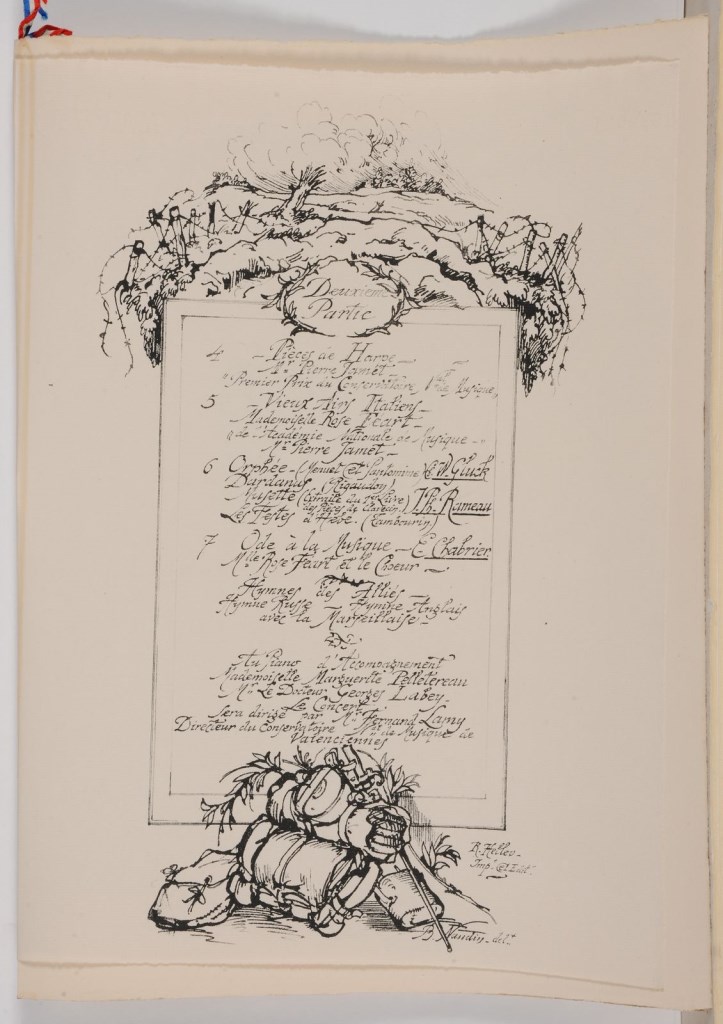 Deuxième
Partie
4 - Pièces de Harpe -
Mr Pierre Jamet -
"Premier Prix du Conservatoire, de Musique"
5 - Vieux Airs Italiens -
Mademoiselle Rose Féart -
"de l'Académie Nationale de Musique -"
Mr Pierre Jamet -
6 Orphée - (Menuet et Pantomime) W. Gluck
Dardanus (Rigaudon)
Musette (Extraite du Livre
des Pièces de clavecin) J. Ph. Rameau
Les Festes d'Hébé. (Tambourin)
7 Ode à la Musique - E. Chabrier
Mlle Rose Féart et le Choeur -
Hymnes des Alliés -
Hymne Russe - Hymne Anglais
avec la Marseillaise -
Au Piano d'Accompagnement
Mademoiselle Marguerite Pelletereau
Mr Le Docteur Georges Labey -
Le Concert
sera dirigé par Mr Fernand Lamy
Directeur du Conservatoire Nal de Musique de
Valenciennes
Imp. et Edit.
B. Naudin - delt